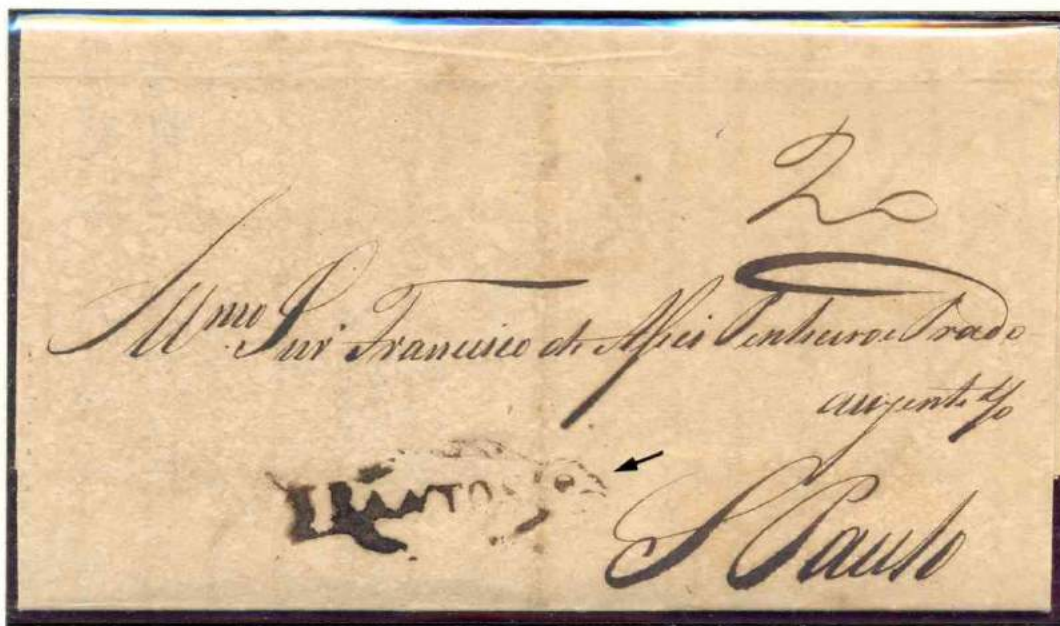 20
Illmo Snr Francisco de Assis Pinheiro e Prado
auzente %
SANTOS
S Paulo